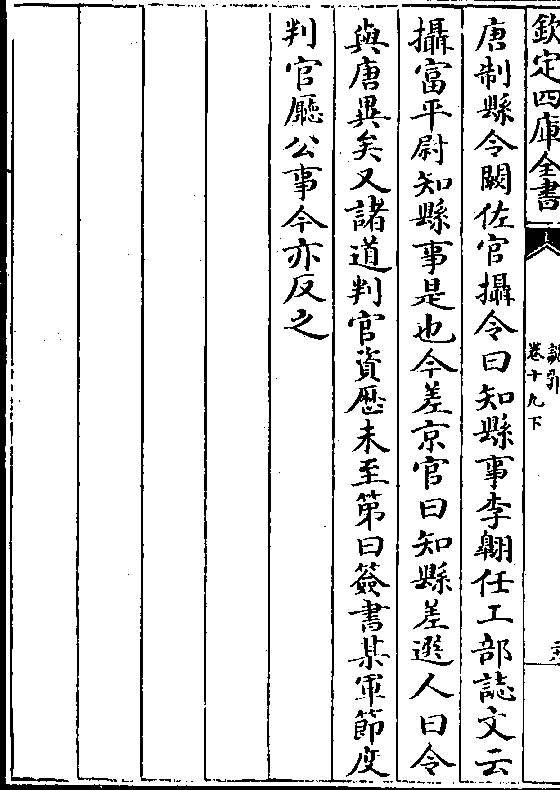 欽定四庫全書
卷十九下
唐制縣令闕佐官攝令曰知縣事李翺任工部誌文云
攝富平尉知縣事是也今差京官曰知縣差選人曰令
與唐異矣又諸道判官資歷未至第曰簽書某軍節度
判官廳公事今亦反之